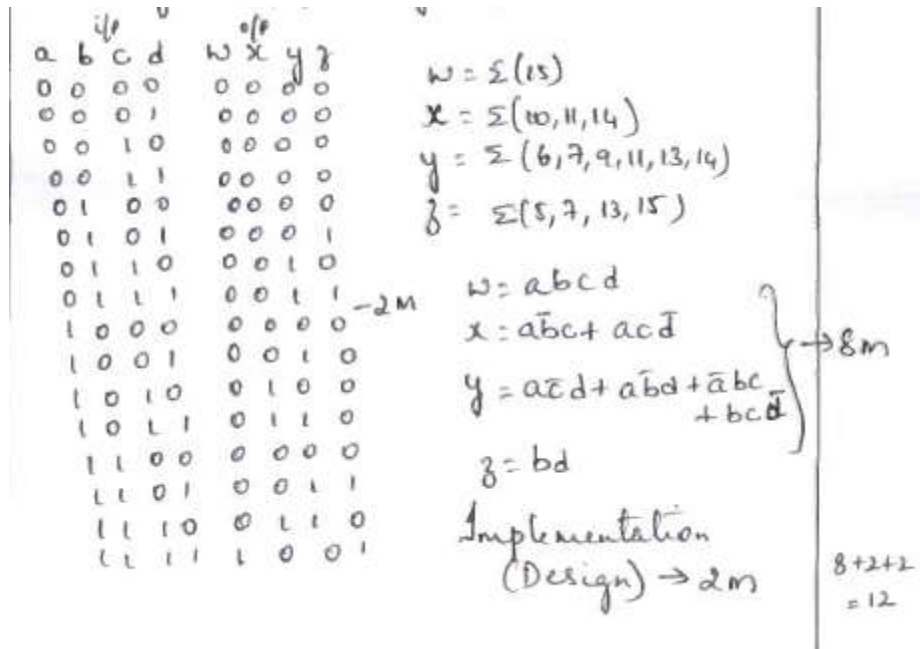 i/p o/p
a b c d w x y z
0 0 0 0 0 0 0 0
0 0 0 1 0 0 0 0
0 0 1 0 0 0 0 0
0 0 1 1 0 0 0 0
0 1 0 0 0 0 0 0
0 1 0 1 0 0 0 1
0 1 1 0 0 0 1 0
0 1 1 1 0 0 1 1 - 2M
1 0 0 0 0 0 0 0
1 0 0 1 0 0 1 0
1 0 1 0 0 1 0 0
1 0 1 1 0 1 1 0
1 1 0 0 0 0 0 0
1 1 0 1 0 0 1 1
1 1 1 0 0 1 1 0
1 1 1 1 1 0 0 1
w = Σ(15)
x = Σ(10,11,14)
y = Σ(6,7,9,11,13,14)
z = Σ(5,7,13,15)
w = abcd
x = ab̄c + acd̄
y = ac̄d + ab̄d + ābc
+ bcd̄
z = bd
→ 8m
Implementation
(Design) → 2m
8+2+2
= 12